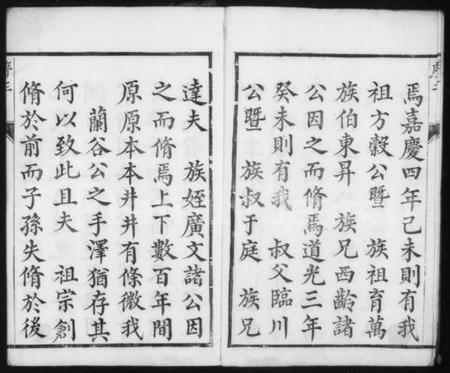 焉嘉慶四年己未則有我
祖方穀公暨 族祖育萬
族伯東昇 族兄西齡諸
公因之而脩焉道光三年
癸未則有我 叔父臨川
公暨 族叔于庭 族兄
達夫 族姪廣文諸公因
之而脩焉上下數百年間
原原本本井井有條微我
蘭谷公之手澤猶存其
何以致此且夫 祖宗創
脩於前而子孫失脩於後